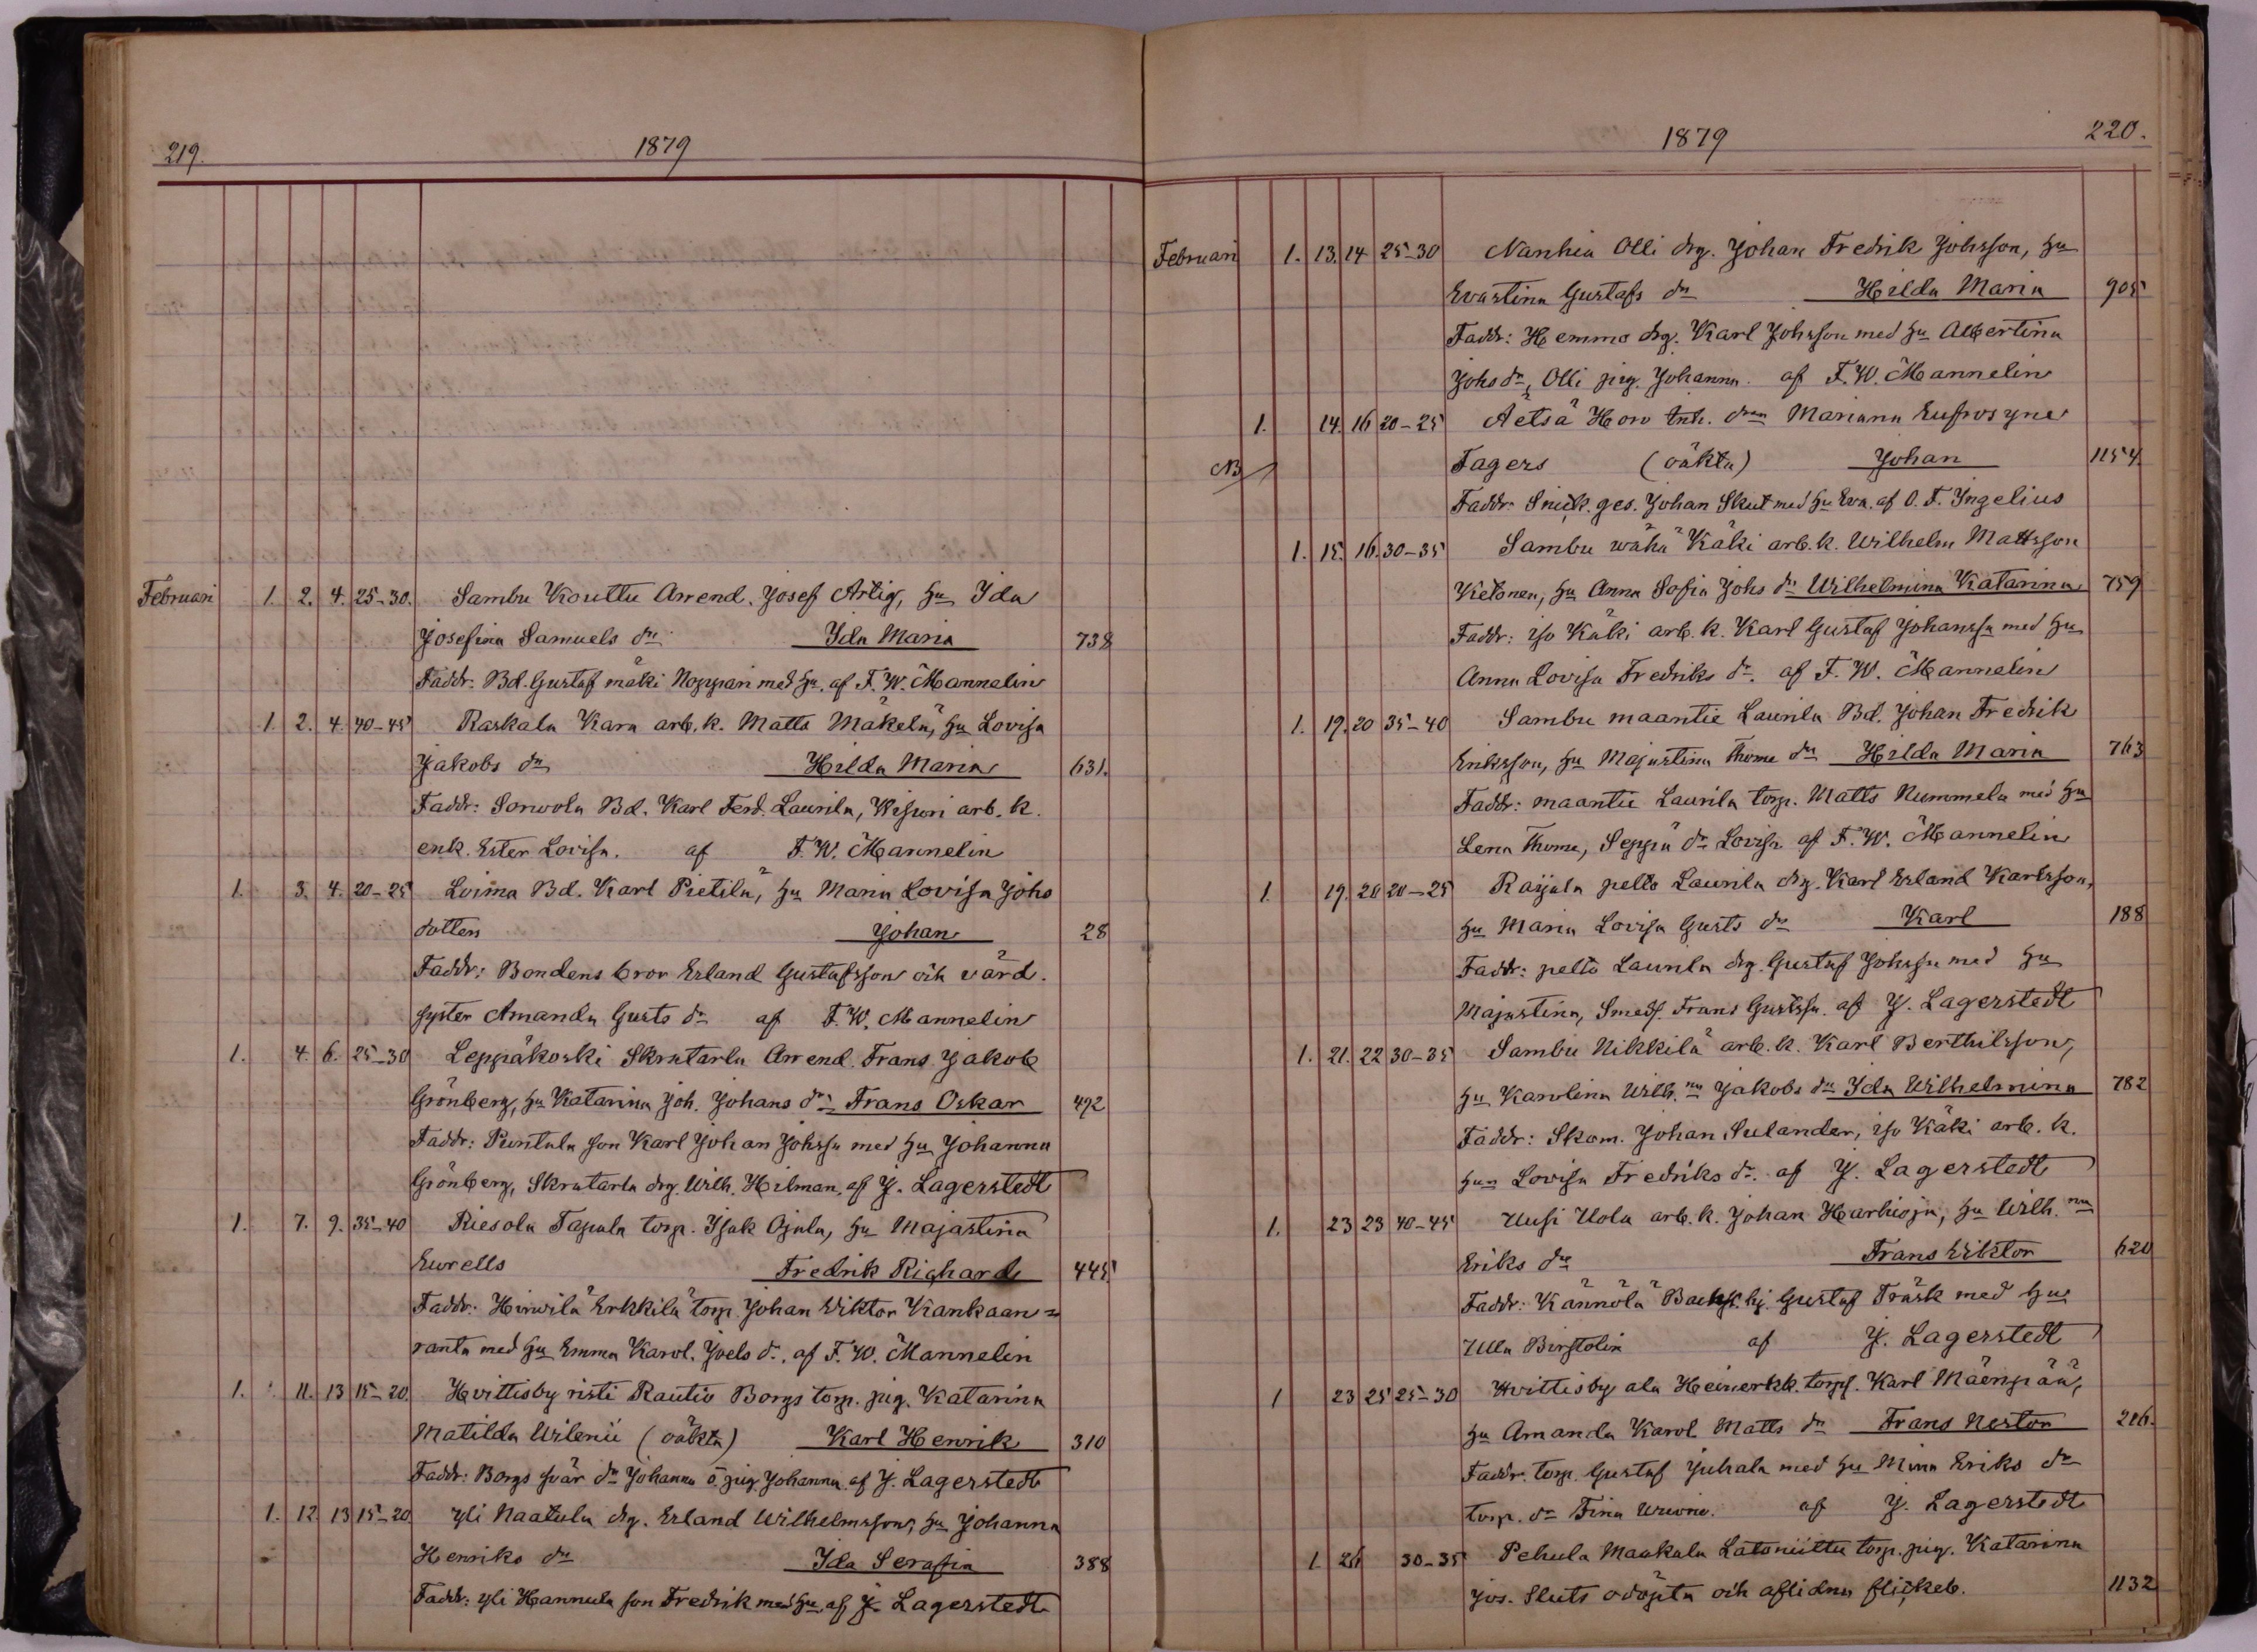 219.
1879
Februari 1. 2. 4. 25-30. Sambu Kouttu Arrend. Josef Artig, hu Ida
Josefina Samuels dr Ida Maria 738
Faddr: Bd. Gustaf mäki Noppari med hu. af F. W. Mannelin
1. 2. 4. 40-45 Raskala Kara arb. k. Matts Mäkelä, hu Lovisa
Jakobs dr Hilda Maria 631.
Faddr: Sorwola Bd. Karl Ferd. Laurila, Wisuri arb. k.
enk. Ester Lovisa. af F. W. Mannelin
1. 3. 4. 20-25 Loima Bd. Karl Pietilä, hu Maria Lovisa Johs
dotter Johan 28
Faddr: Bondens bror Erland Gustafsson och värd.
syster Amanda Gusts dr af F. W. Mannelin
1. 4. 6. 25-30 Leppäkoski Skratarla Arrend. Frans Jakob
Grönberg, hu Katarina Joh. Johans dr Frans Oskar 492
Faddr: Puntala son Karl Johan Johssn med hu Johanna
Grönberg, Skratarla drg. Wilh. Hilman, af J. Lagerstedt
1. 7. 9. 35-40 Riesola Tapala torp. Isak Ojala, hu Majastina
Eurells Fredrik Richard 445
Faddr: Hirwilä Erkkilä torp. Johan Wiktor Kankaan=
ranta med hu Emma Karol. Joels dr. af F. W. Mannelin
1. 11. 13 15-20 Hvittisby risti Rautio Borgs torp. pig. Katarina
Matilda Wilenii (oäkta) Karl Henrik 310
Faddr: Borgs svär dr Johanna o. pig. Johanna. af J. Lagerstedt
1. 12. 13 15-20 yli Naatula drg. Erland Wilhelmsson, hu Johanna
Henriks dr Ida Serafia 388
Faddr: yli Hannula son Fredrik med hu. af J. Lagerstedt
1879
220.
Februari 1. 13. 14 25-30 Nanhia Olli drg. Johan Fredrik Johsson, hu
Evastina Gustafs dr Hilda Maria 905
Faddr: Hemmo drg. Karl Johsson med hu Albertina
Johs dr, Olli pig. Johanna. af F. W. Mannelin
1. 14. 16 20-25 Äetsä Horo inh. drn Mariana Eufrosyne
NB Fagers (oäkta) Johan 1154.
Faddr. Snick. ges. Johan Skut med hu Eva. af O. F. Ingelius
1. 15. 16. 30-35 Sambu wähä Käki arb. k. Wilhelm Mattsson
Ketonen, hu Anna Sofia Johs dr Wilhelmina Katarina 759
Faddr: iso Käki arb. k. Karl Gustaf Johanssn med hu
Anna Lovisa Fredriks dr. af F. W. Mannelin
1. 19. 20 35-40 Sambu maantie Laurila Bd. Johan Fredrik
Eriksson, hu Majastina Thome dr Hilda Maria 763
Faddr: maantie Laurila torp. Matts Nummela med hu
Lena Thome, Seppä dr Lovisa af F. W. Mannelin
1. 19. 20 20-25 Raijala pelto Laurila drg. Karl Erland Karlsson,
hu Maria Lovisa Gusts dr Karl 188
Faddr: pelto Laurila drg. Gustaf Johssn med hu
Majastina, Smeds. Frans Gustssn. af J. Lagerstedt
1. 21. 22 30-35 Sambu Nikkilä arb. k. Karl Berthilsson,
hu Karolina Wilh.na Jakobs dr Ida Wilhelmina 782
Faddr: Skom. Johan Sulander, iso Käki arb. k.
hun Lovisa Fredriks dr. af J. Lagerstedt
1. 23 23 40-45 Uusi Uola arb. k. Johan Harhioja, hu Wilh.na
Eriks dr Frans Wiktor 620
Faddr: Kännölä hj. Gustaf Träsk med hu
Ulla Birstolin af J. Lagerstedt
1 23 25 25-30 Hvittisby ala Heinerkk. torps. Karl Mäenpää,
hu Amanda Karol. Matts dr Frans Nestor 216.
Faddr. torp. Gustaf Juhala med hu Mina Eriks dr
torp. dr Fina af J. Lagerstedt
1. 26 30-35 Pehula Maukala Latoniittu torp. pig. Katarina
Jos. Sluts odöpta och aflidna flickeb. 1132